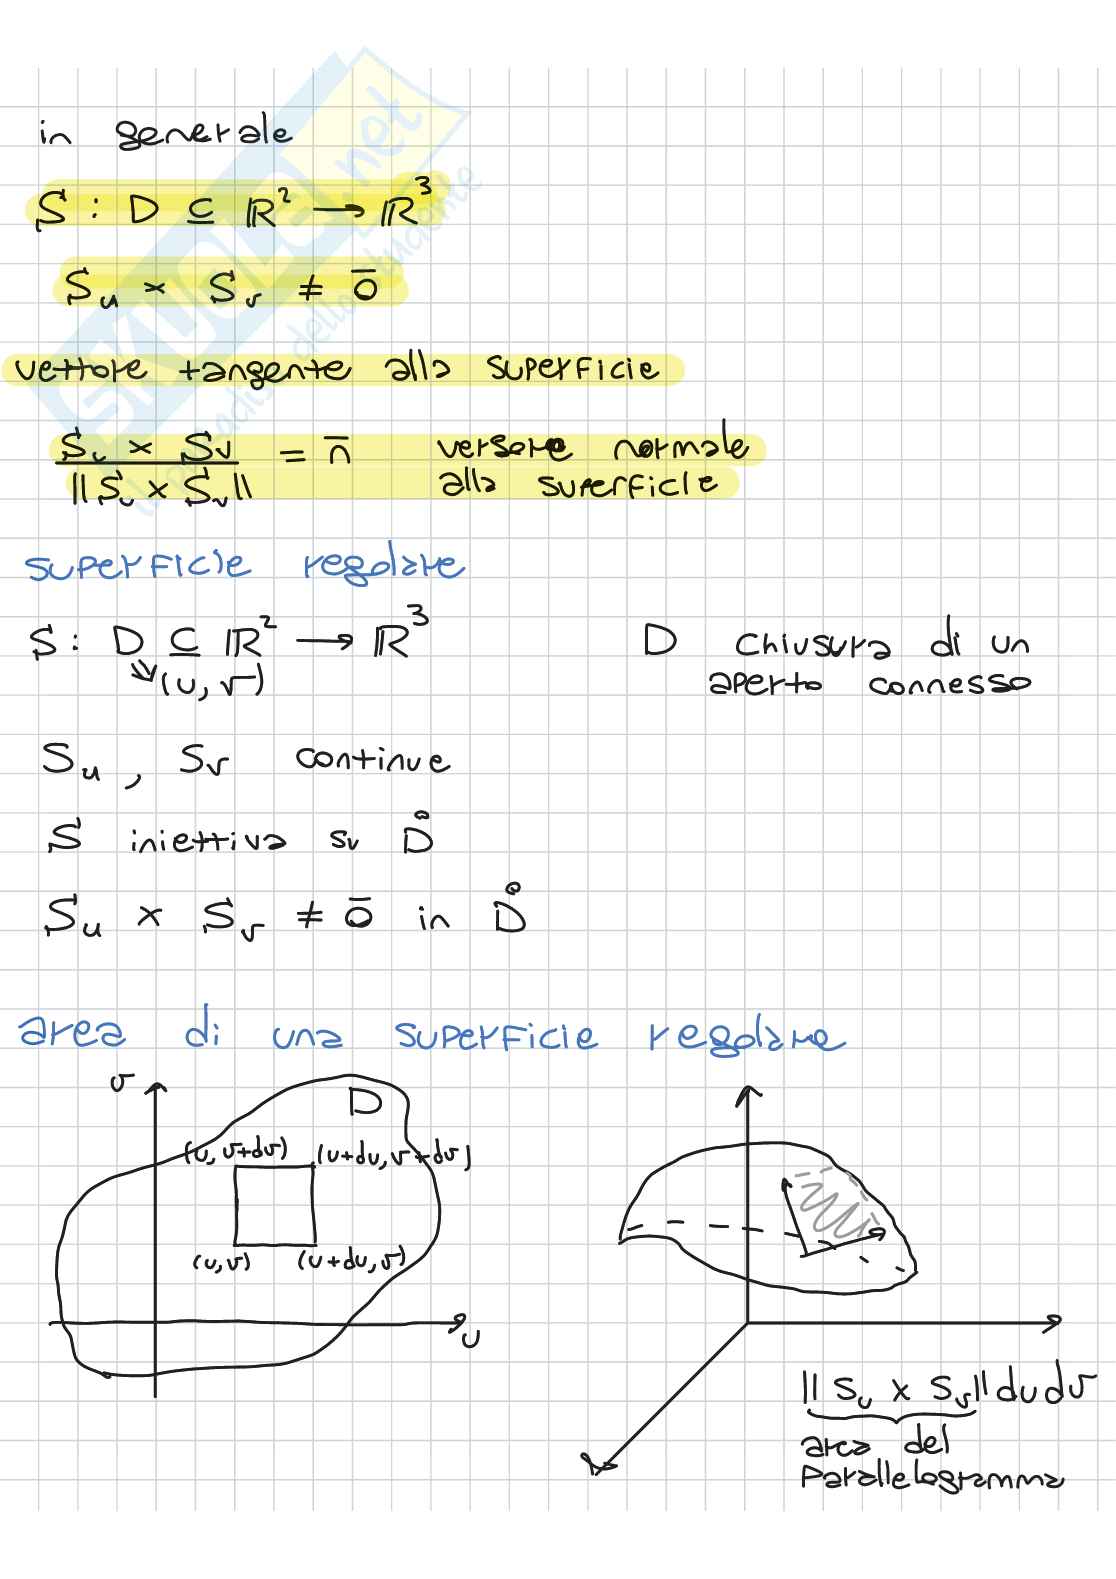 in generale
S : D ⊆ ℝ² → ℝ³
Sᵤ × Sᵥ ≠ 0̄
vettore tangente alla superficie
Sᵤ × Sᵥ / ‖Sᵤ × Sᵥ‖ = n̄ versore normale
alla superficie
superficie regolare
S : D ⊆ ℝ² → ℝ³ D chiusura di un
(u, v) aperto connesso
Sᵤ , Sᵥ continue
S iniettiva su D̊
Sᵤ × Sᵥ ≠ 0̄ in D̊
area di una superficie regolare
v D
(u, v+dv) (u+du, v+dv)
(u, v) (u+du, v)
u
‖Sᵤ × Sᵥ‖ du dv
area del
parallelogramma
SKUOLA.net
il paradiso dello studente